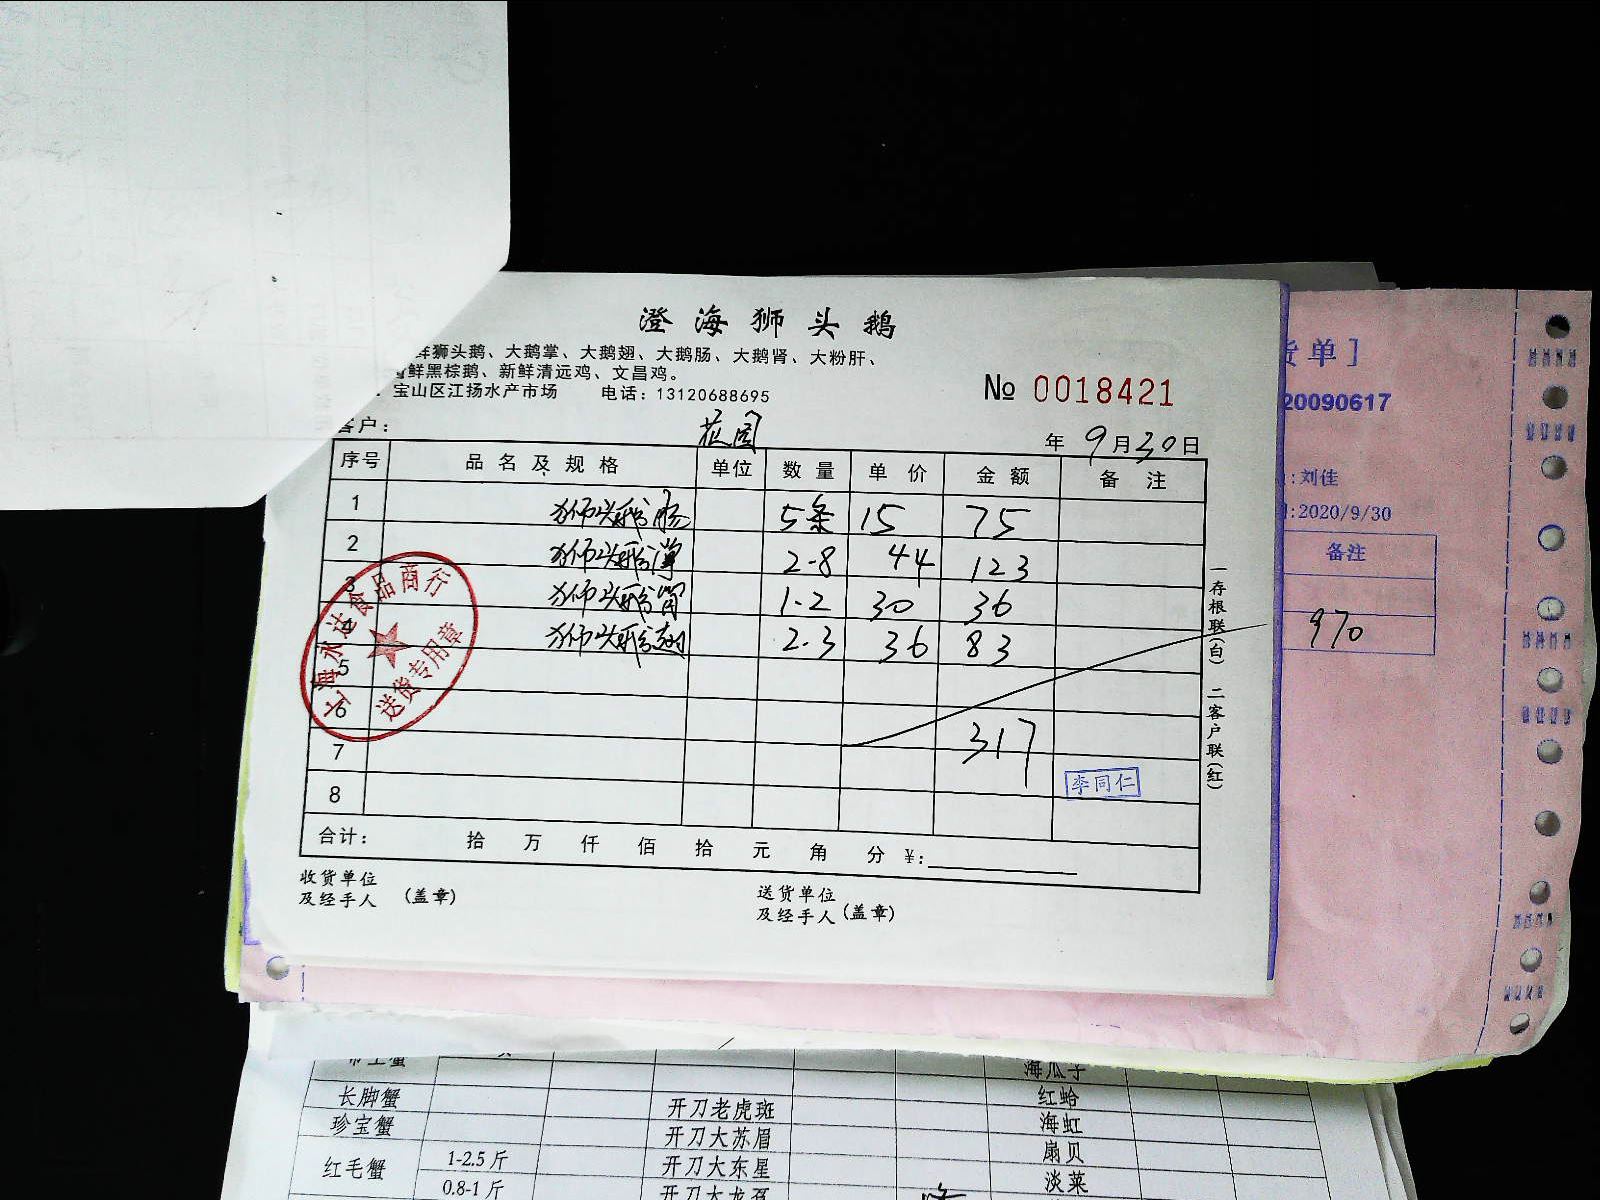 澄海狮头鹅
狮头鹅、大鹅掌、大鹅翅、大鹅肠、大鹅肾、大粉肝、
鲜黑棕鹅、新鲜清远鸡、文昌鸡。
宝山区江扬水产市场 电话：13120688695
№ 0018421
客户： 年 9月30日
序号 品名及规格 单位 数量 单价 金额 备注
1 狮头鹅肠 5条 15 75
2 狮头鹅 2-8 44 123
3 狮头鹅 1-2 30 36
4 狮头鹅翅 2.3 36 83
5
6
7 317
8
李同仁
合计： 拾 万 仟 佰 拾 元 角 分 ￥:
收货单位
及经手人 (盖章)
送货单位
及经手人 (盖章)
一存根联(白) 二客户联(红)
上海永达食品商行
送货专用章
货单]
20090617
:刘佳
:2020/9/30
备注
970
海瓜子
长脚蟹 开刀老虎斑 红蛤
珍宝蟹 开刀大苏眉 海虹
红毛蟹 1-2.5斤 开刀大东星 扇贝
0.8-1斤 淡菜